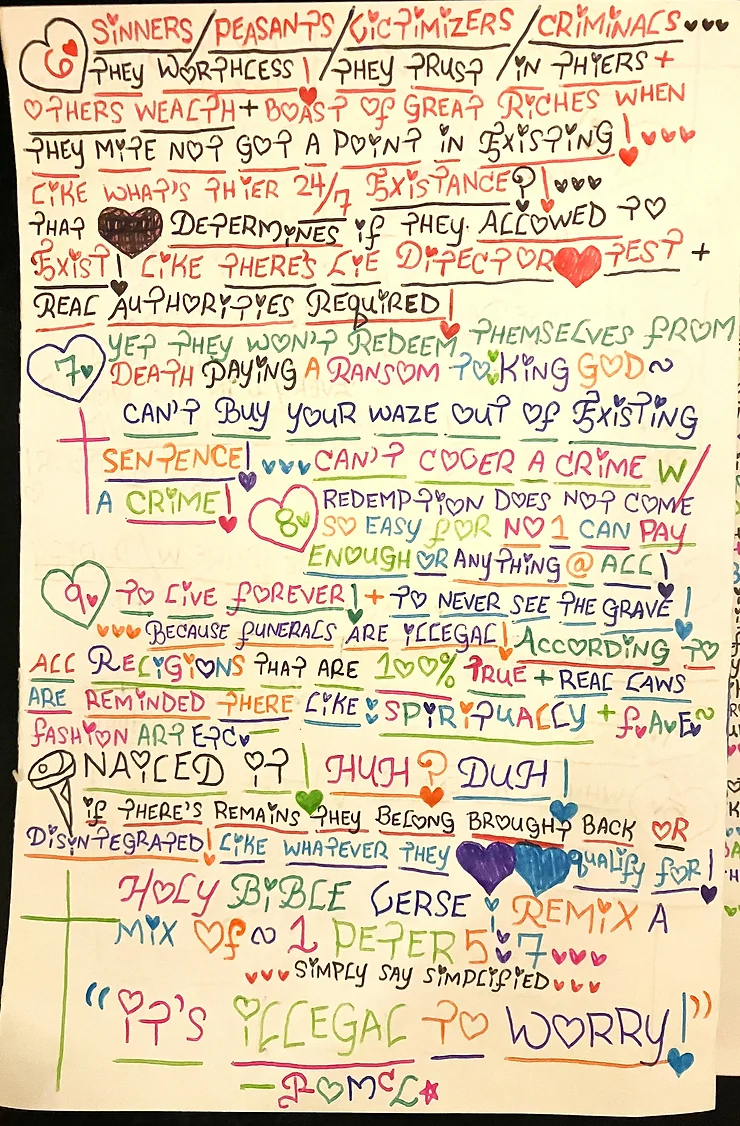 6 SINNERS/PEASANTS/VICTIMIZERS/CRIMINALS...
THEY WORTHLESS! THEY TRUST IN THIERS+
OTHERS WEALTH+BOAST OF GREAT RICHES WHEN
THEY MITE NOT GOT A POINT IN EXISTING!
LIKE WHAT'S THIER 24/7 EXISTANCE?!
THAT DETERMINES if THEY ALLOWED TO
EXIST! LIKE THERE'S LIE DITECTOR TEST +
REAL AUTHORITIES REQUIRED!
7 YET THEY WON'T REDEEM THEMSELVES FROM
DEATH PAYING A RANSOM TO:KING GOD~
CAN'T BUY YOUR WAZE OUT OF EXISTING
SENTENCE!...CAN'T COVER A CRIME W/
A CRIME! 8 REDEMPTION DOES NOT COME
SO EASY FOR NO 1 CAN PAY
ENOUGH OR ANYTHING @ ALL!
9 TO LIVE FOREVER!+TO NEVER SEE THE GRAVE!
...BECAUSE FUNERALS ARE ILLEGAL! ACCORDING TO
ALL RELIGIONS THAT ARE 100% TRUE + REAL LAWS
ARE REMINDED THERE LIKE:SPIRITUALLY + F.A.E.~
FASHION ART ETC.
NAILED IT! HUH? DUH!
if THERE'S REMAINS THEY BELONG BROUGHT BACK OR
DISINTEGRATED! LIKE WHATEVER THEY QUALIFY FOR!
HOLY BIBLE VERSE: REMIX A
MIX OF~1 PETER 5:7...
...SIMPLY SAY SIMPLIFIED...
"IT'S ILLEGAL TO WORRY!"
-POMCL